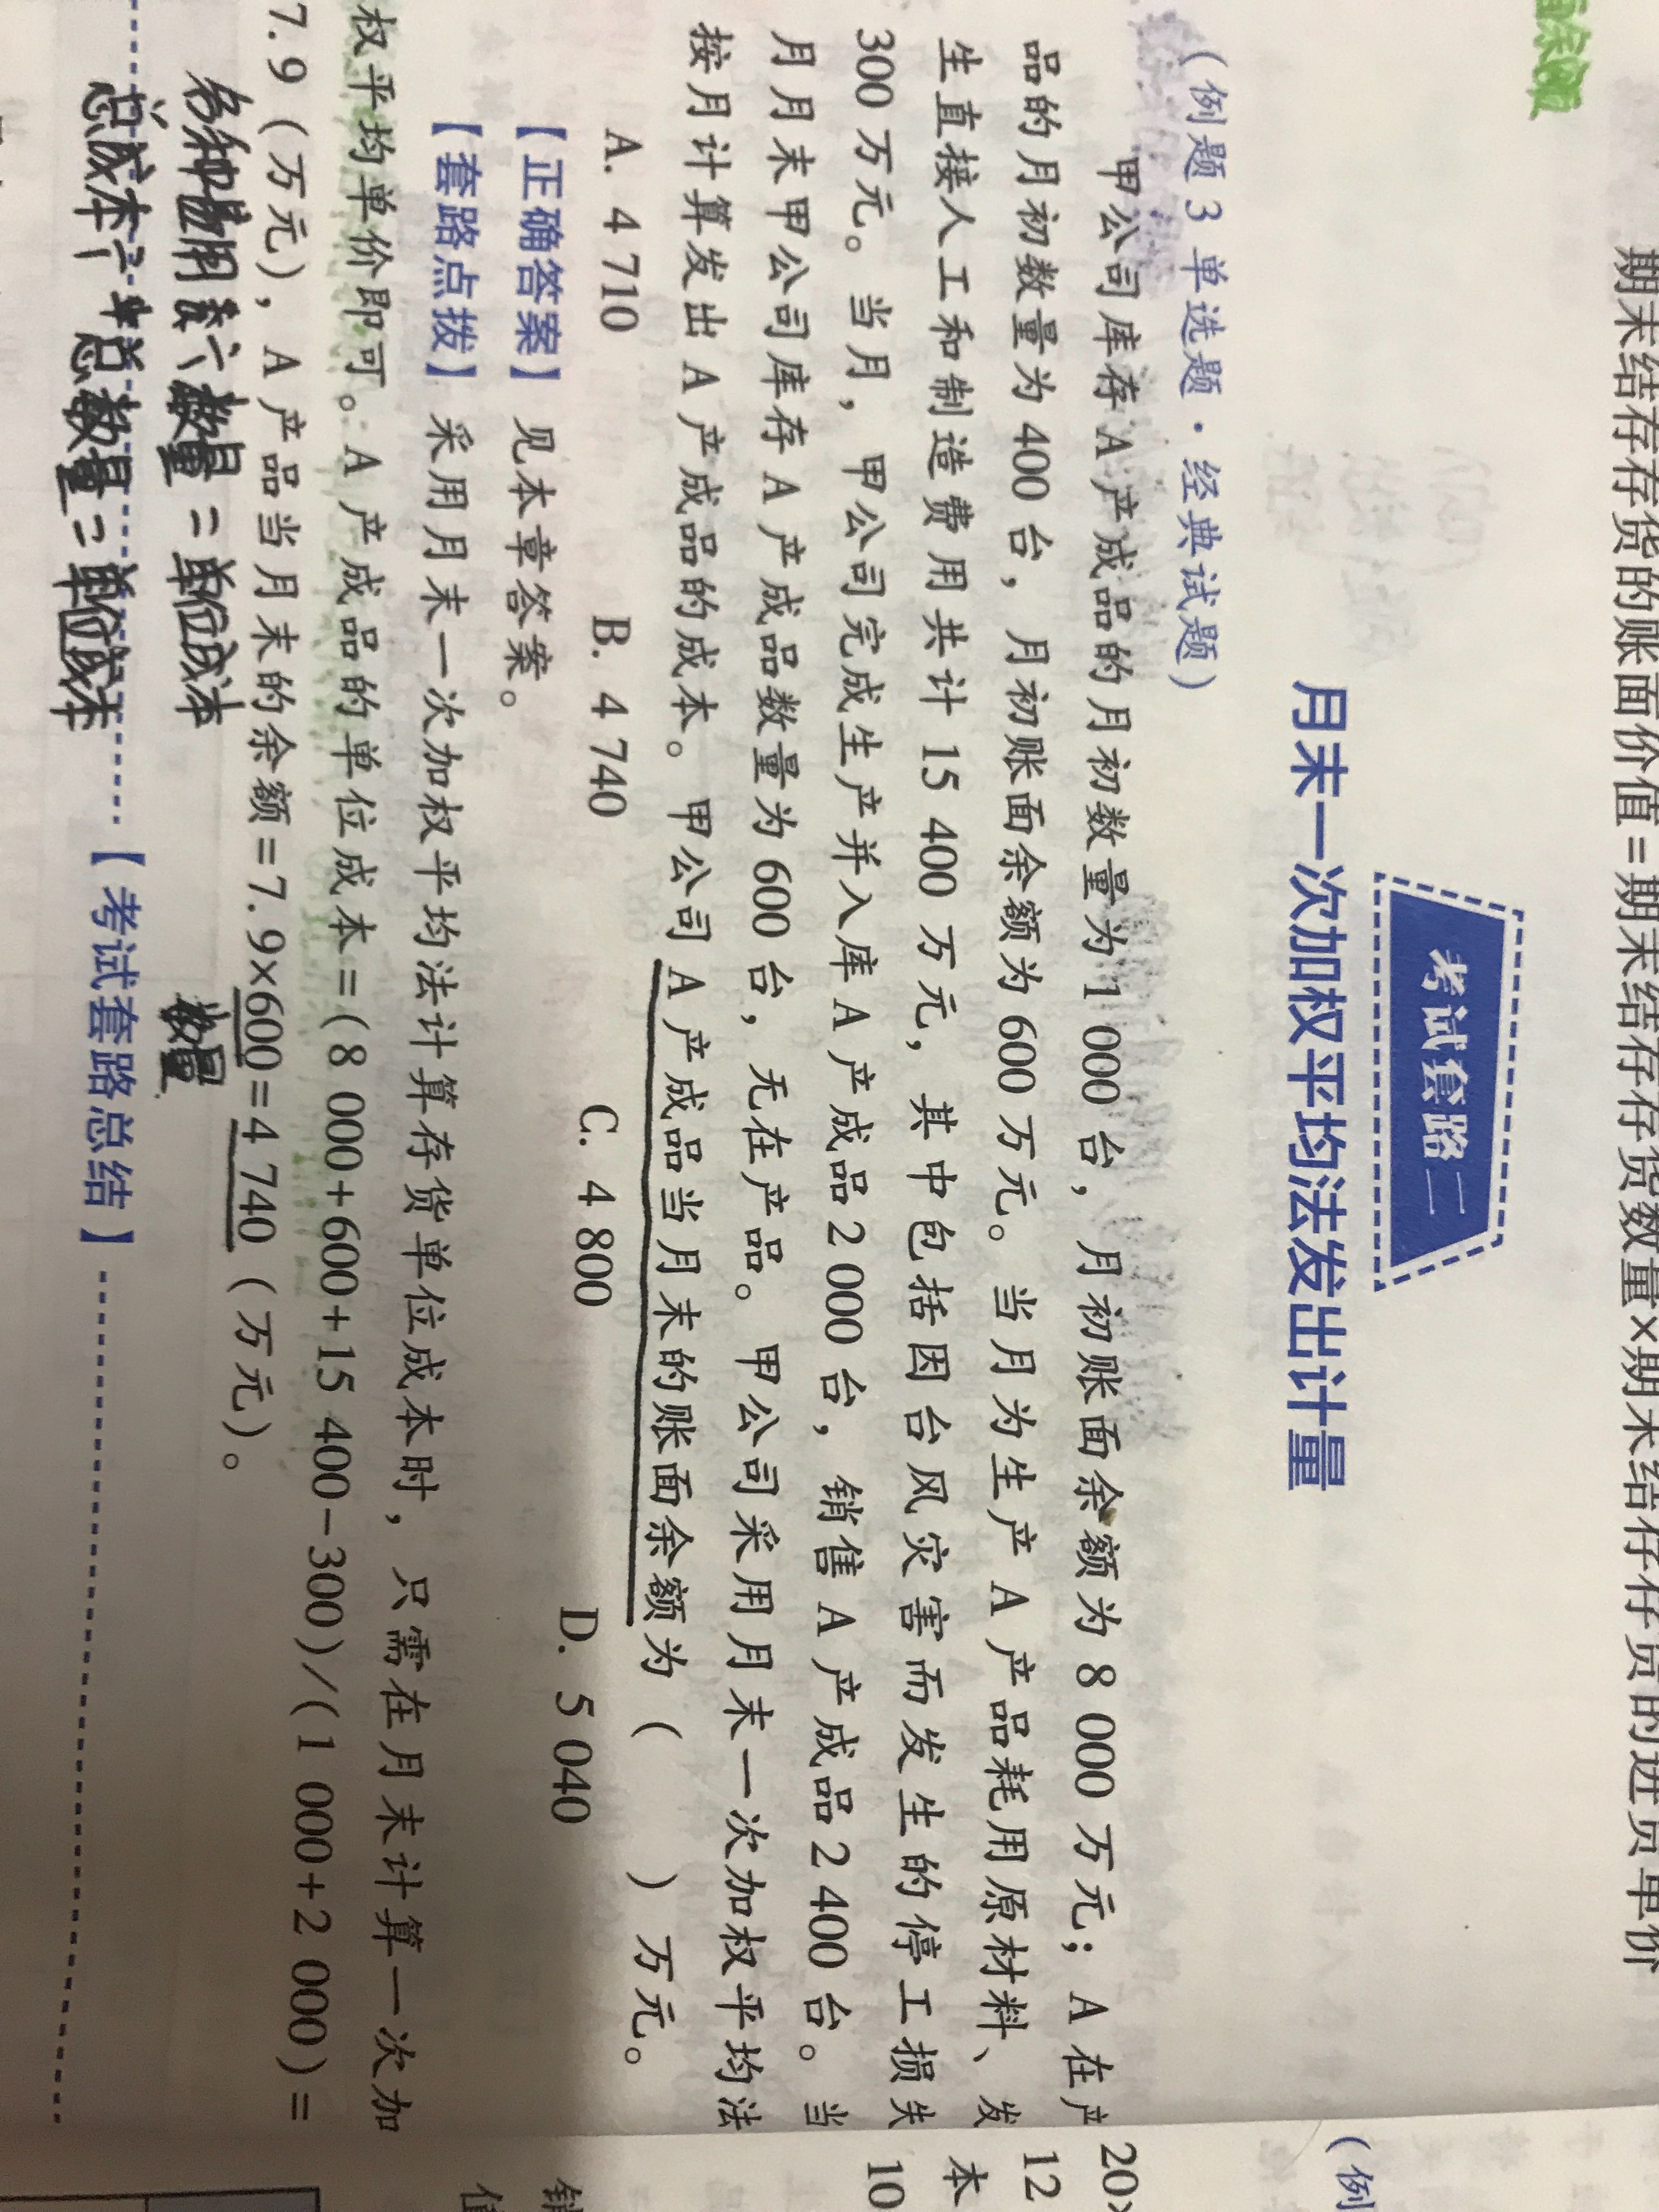 期末结存存货的账面价值=期末结存存货数量×期末结存存货的进货单价
考试套路二
月末一次加权平均法发出计量
（例题3 单选题·经典试题）
甲公司库存A产成品的月初数量为1 000台，月初账面余额为8 000万元；A在产
品的月初数量为400台，月初账面余额为600万元。当月为生产A产品耗用原材料、发
生直接人工和制造费用共计15 400万元，其中包括因台风灾害而发生的停工损失
300万元。当月，甲公司完成生产并入库A产成品2 000台，销售A产成品2 400台。当
月月末甲公司库存A产成品数量为600台，无在产品。甲公司采用月末一次加权平均法
按月计算发出A产成品的成本。甲公司A产成品当月末的账面余额为（ ）万元。
A. 4 710 B. 4 740 C. 4 800 D. 5 040
【正确答案】见本章答案。
【套路点拨】采用月末一次加权平均法计算存货单位成本时，只需在月末计算一次加
权平均单价即可。A产成品的单位成本=(8 000+600+15 400-300)/(1 000+2 000)=
7.9（万元），A产品当月末的余额=7.9×600=4 740（万元）。
数量
数量=单位成本
总成本÷总数量=单位成本
【考试套路总结】
（例
20×
12
本
10
销
值